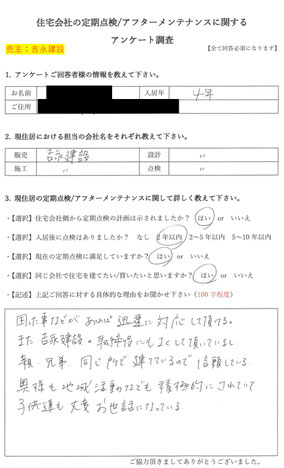 住宅会社の定期点検/アフターメンテナンスに関する
アンケート調査
売主：吉永建設
【全て回答必須になります】
1. アンケートご回答者様の情報を教えて下さい。
お名前 入居年 4年
ご住所
2. 現住居における担当の会社名をそれぞれ教えて下さい。
販売 吉永建設 設計 〃
施工 〃 点検 〃
3. 現住居の定期点検/アフターメンテナンスに関して詳しく教えて下さい。
・【選択】住宅会社側から定期点検の計画は示されましたか？ はい or いいえ
・【選択】入居後に点検はありましたか？ なし 2年以内 2～5年以内 5～10年以内
・【選択】現在の定期点検に満足していますか？ はい or いいえ
・【選択】同じ会社で住宅を建てたい/買いたいと思いますか？ はい or いいえ
・【記述】上記ご回答に対する具体的な理由をお聞かせ下さい（100字程度）
困った事などがあれば迅速に対応して頂ける。
また吉永建設の取締役にも良くして頂いているし
親、兄弟、同じ所で建てているので信頼している。
奥様も地域活動なども積極的にされていて
子供達も大変お世話になっている。
ご協力頂きましてありがとうございました。